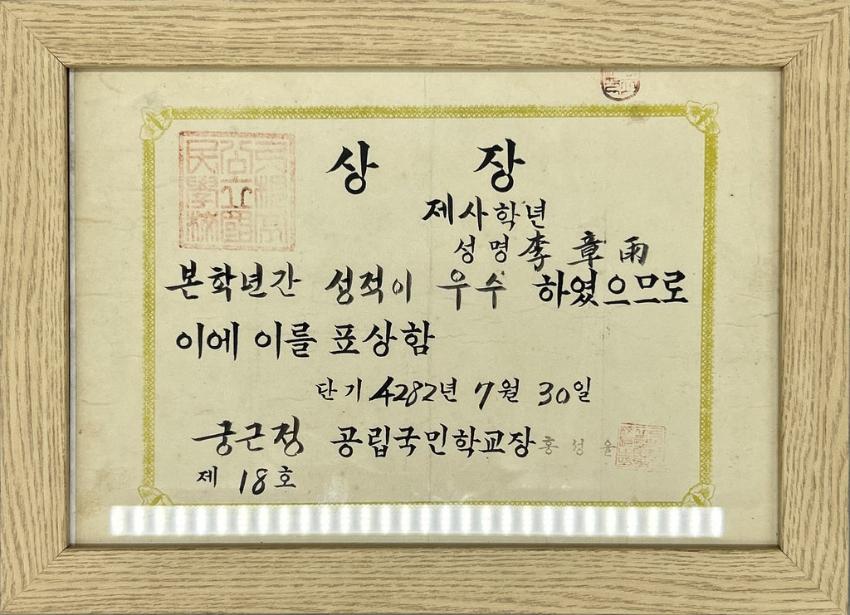 상 장
제사학년
성명 李章雨
본학년간 성적이 우수 하였으므로
이에 이를 표상함
단기 4282년 7월 30일
궁근정 공립국민학교장 홍성율
제 18호